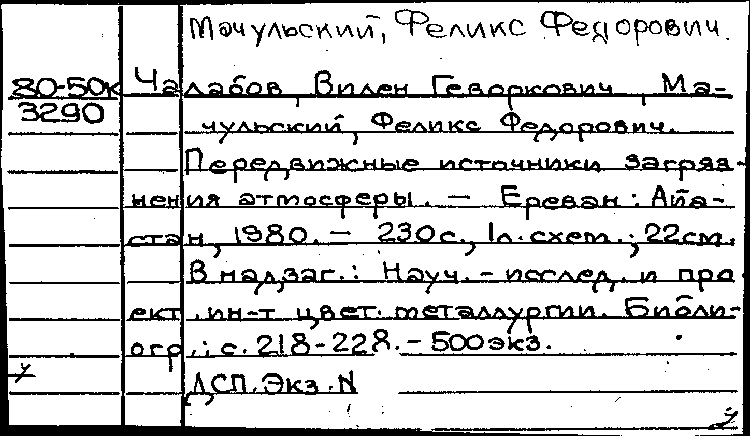 Мачульский, Феликс Федорович.
80-50к Чалабов, Вилен Геворкович, Ма-
3290 чульский, Феликс Федорович.
Передвижные источники загряз-
нения атмосферы. — Ереван: Айа-
стан, 1980. — 230с., 1л. схем.; 22см.
В надзаг.: Науч.-исслед. и про
ект. ин-т цвет. металлургии. Библи-
огр.: с. 218-228. - 500экз.
ДСП. Экз. N